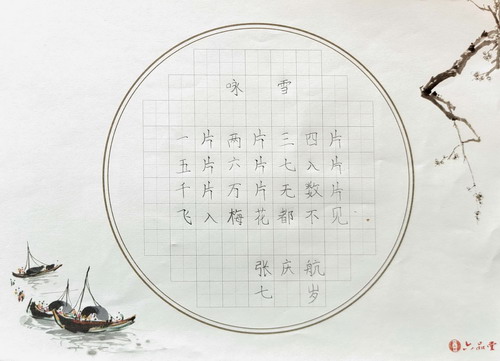 咏雪
一片两片三四片
五片六片七入片
千片万片无数片
飞入梅花都不见。
张庆航
七岁
六品堂